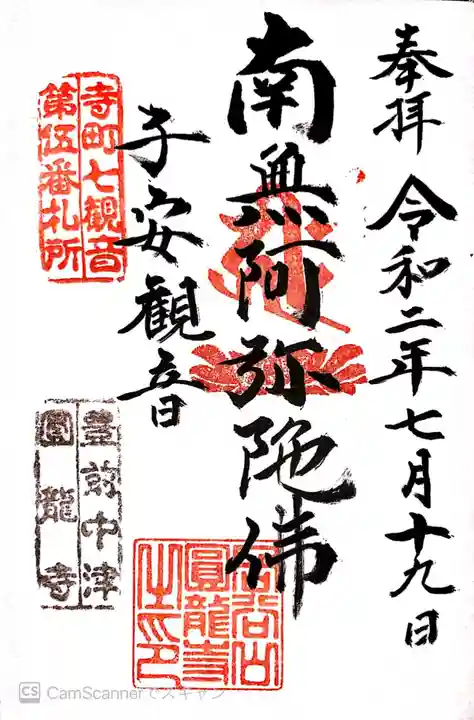 奉拝 令和二年七月十九日
南無阿弥陀佛
子安観音
寺町七観音
第伍番札所
豊前中津
圓龍寺
圓龍寺
之印
CS CamScannerでスキャン